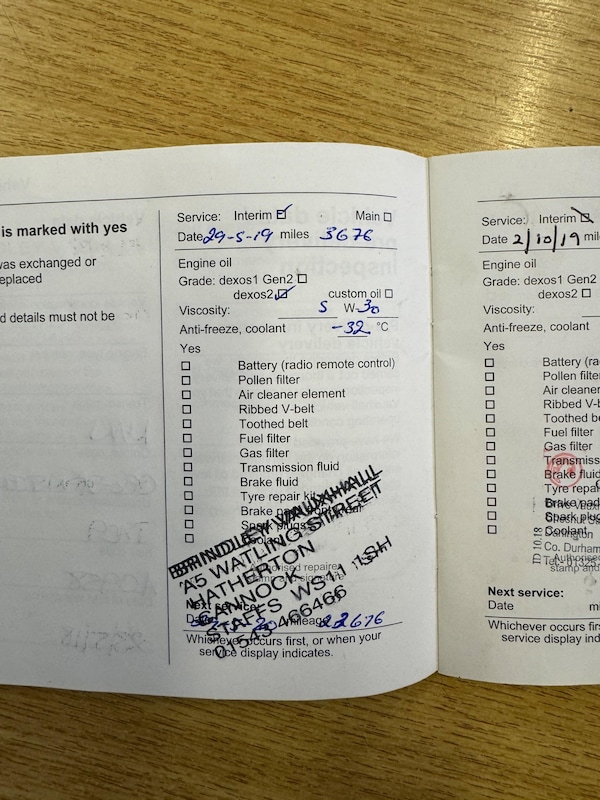 is marked with yes
was exchanged or
eplaced
d details must not be
Service: Interim Main
Date 29-5-19 miles 3676
Engine oil
Grade: dexos1 Gen2
dexos2 custom oil
Viscosity: 5 W-30
Anti-freeze, coolant -32 °C
Yes
Battery (radio remote control)
Pollen filter
Air cleaner element
Ribbed V-belt
Toothed belt
Fuel filter
Gas filter
Transmission fluid
Brake fluid
Tyre repair kit
Brake pads
Spark plugs
Coolant
BRINDLEY VAUXHALL
A5 WATLING STREET
HATHERTON
CANNOCK
STAFFS WS11 1SH
01543 466466
Authorised repairer
stamp and signature
Next service:
Date mileage 22676
Whichever occurs first, or when your
service display indicates.
Service: Interim
Date 2/10/19 mil
Engine oil
Grade: dexos1
dexos2
Viscosity:
Anti-freeze, coolant
Yes
Battery (ra
Pollen filter
Air cleaner
Ribbed V-b
Toothed be
Fuel filter
Gas filter
Transmiss
Brake fluid
Tyre repai
Brake pad
Spark plug
Coolant
Co. Durham
Authorised
stamp and
Next service:
Date mi
Whichever occurs firs
service display ind